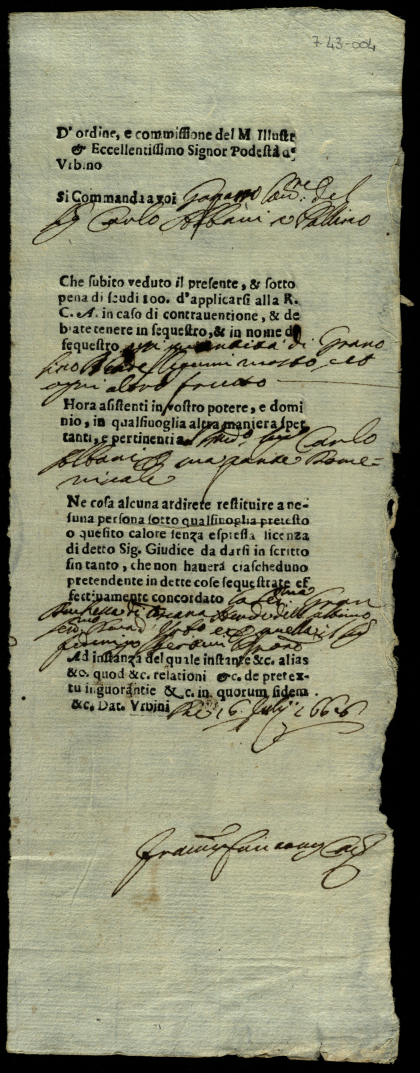 743-004
D'ordine, e commissione del M. Illustr
& Eccellentissimo Signor Podestà d'
Vrbino
Si Commanda a voi
Sig Carlo Albani a Pallino
Che subito veduto il presente, & sotto
pena di scudi 100. d'applicarsi alla R.
C. A. in caso di contrauentione, & de
biate tenere in sequestro, & in nome di
sequestro ogni quantità di Grano
lino legumi mosto, et
ogni altro frutto
Hora asistenti in vostro potere, e domi
nio, in qualsiuoglia altra maniera spet
tanti, e pertinenti a Carlo
Albani per sua parte Dome-
nicale
Ne cosa alcuna ardirete restituire a ne-
suna persona sotto qualsiuoglia pretesto
o quesito calore senza espressa licenza
di detto Sig. Giudice da darsi in scritto
sin tanto, che non hauerà ciascheduno
pretendente in dette cose sequestrate ef
fectiuamente concordato la Ser.ma Gran
Duchessa di Toscana
Ad instanza del quale instante &c. alias
&c. quod &c. relationi &c. de pretex-
tu inguorantie &c. in quorum fidem
&c. Dat. Vrbini 16 Julij 1666